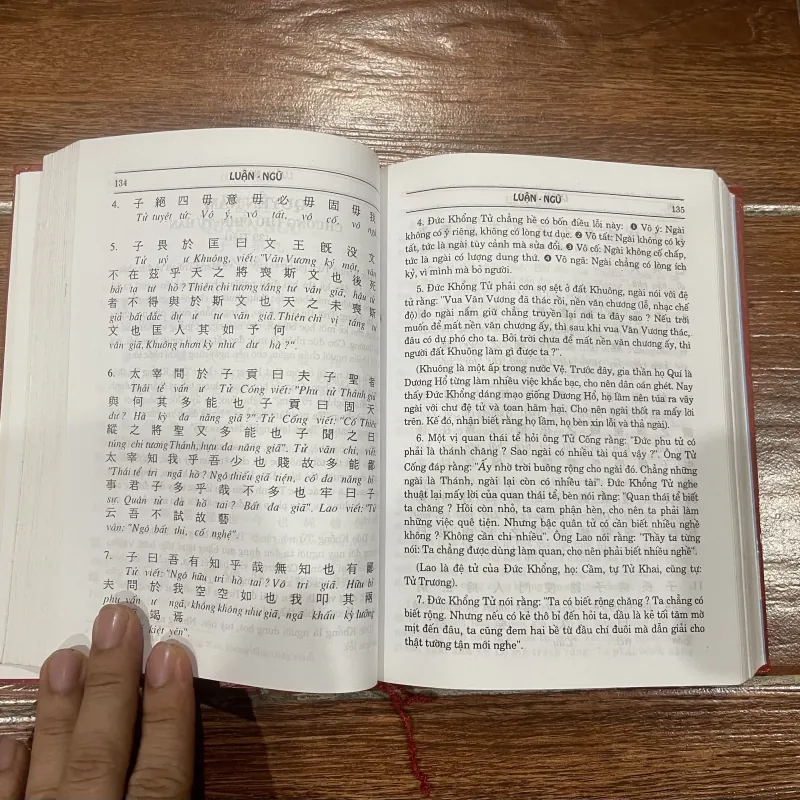 134
LUẬN - NGỮ
4. 子 絕 四 毋 意 毋 必 毋 固 毋 我
Tử tuyệt tứ: Vô ý, vô tất, vô cố, vô ngã
5. 子 畏 於 匡 曰 文 王 旣 没 文
Tử uý ư Khuông, viết: "Văn Vương ký một, văn
不 在 茲 乎 天 之 將 喪 斯 文 也 後 死
bất tại tư hồ? Thiên chi tương táng tư văn giã, hậu tử
者 不 得 與 於 斯 文 也 天 之 未 喪 斯
giả bất đắc dự ư tư văn giã. Thiên chi vị táng tư
文 也 匡 人 其 如 予 何
văn giã, Khuông nhơn kỳ như dư hà?".
6. 太 宰 問 於 子 貢 曰 夫 子 聖 者
Thái tể vấn ư Tử Cống viết: "Phu tử Thánh giả
與 何 其 多 能 也 子 貢 曰 固 天
dư? Hà kỳ đa năng giã?" Tử Cống viết: "Cố Thiên
縱 之 將 聖 又 多 能 也 子 聞 之 曰
túng chi tương Thánh, hựu đa năng giã". Tử văn chi, viết:
太 宰 知 我 乎 吾 少 也 賤 故 多 能 鄙
"Thái tể tri ngã hồ? Ngô thiếu giã tiện, cố đa năng bỉ
事 君 子 多 乎 哉 不 多 也 牢 曰 子
sự. Quân tử đa hồ tai? Bất đa giã". Lao viết: "Tử
云 吾 不 試 故 藝
vân: "Ngô bất thí, cố nghệ".
7. 子 曰 吾 有 知 乎 哉 無 知 也 有 鄙
Tử viết: "Ngô hữu tri hồ tai? Vô tri giã. Hữu bỉ
夫 問 於 我 空 空 如 也 我 叩 其 兩
phu vấn ư ngã, không không như giã, ngã khấu kỳ lưỡng
竭 焉
kiệt yên".
LUẬN - NGỮ
135
4. Đức Khổng Tử chẳng hề có bốn điều lỗi này: ❶ Vô ý: Ngài
không có ý riêng, không có lòng tự dục. ❷ Vô tất: Ngài không có kỳ
tất, tức là ngài tùy cảnh mà sửa đổi. ❸ Vô cố: Ngài không cố chấp,
tức là ngài có lượng dung thứ. ❹ Vô ngã: Ngài chẳng có lòng ích
kỷ, vì mình mà bỏ người.
5. Đức Khổng Tử phải cơn sợ sệt ở đất Khuông, ngài nói với đệ
tử rằng: "Vua Văn Vương đã thác rồi, nền văn chương (lễ, nhạc chế
độ) do ngài nắm giữ chẳng truyền lại nơi ta đây sao ? Nếu trời
muốn để mất nền văn chương ấy, thì sau khi vua Văn Vương thác,
đâu có dự phó cho ta. Bởi trời chưa để mất nền văn chương ấy, thì
người đất Khuông làm gì được ta ?".
(Khuông là một ấp trong nước Vệ. Trước đây, gia thần họ Quí là
Dương Hổ từng làm nhiều việc khắc bạc, cho nên dân oán ghét. Nay
thấy Đức Khổng dáng mạo giống Dương Hổ, họ lầm nên túa ra vây
ngài với chư đệ tử và toan hãm hại. Cho nên ngài thốt ra mấy lời
trên. Kế đó, nhận biết rằng họ lầm, họ bèn xin lỗi và thả ngài).
6. Một vị quan thái tể hỏi ông Tử Cống rằng: "Đức phu tử có
phải là thánh chăng ? Sao ngài có nhiều tài quá vậy ?". Ông Tử
Cống đáp rằng: "Ấy nhờ trời buông rộng cho ngài đó. Chẳng những
ngài là Thánh, ngài lại còn có nhiều tài". Đức Khổng Tử nghe
thuật lại mấy lời của quan thái tể, bèn nói rằng: "Quan thái tể biết
ta chăng ? Hồi còn nhỏ, ta cam phận hèn, cho nên ta phải làm
những việc quê tiện. Nhưng bậc quân tử có cần biết nhiều nghề
không ? Không cần chi nhiều". Ông Lao nói rằng: "Thầy ta từng
nói: Ta chẳng được dùng làm quan, cho nên phải biết nhiều nghề".
(Lao là đệ tử của Đức Khổng, họ: Cầm, tự Tử Khai, cũng tự:
Tử Trương).
7. Đức Khổng Tử nói rằng: "Ta có biết rộng chăng ? Ta chẳng có
biết rộng. Nhưng nếu có kẻ thô bỉ đến hỏi ta, dầu là kẻ tối tăm mờ
mịt đến đâu, ta cũng đem hai bề từ đầu chí đuôi mà dẫn giải cho
thật tường tận mới nghe".